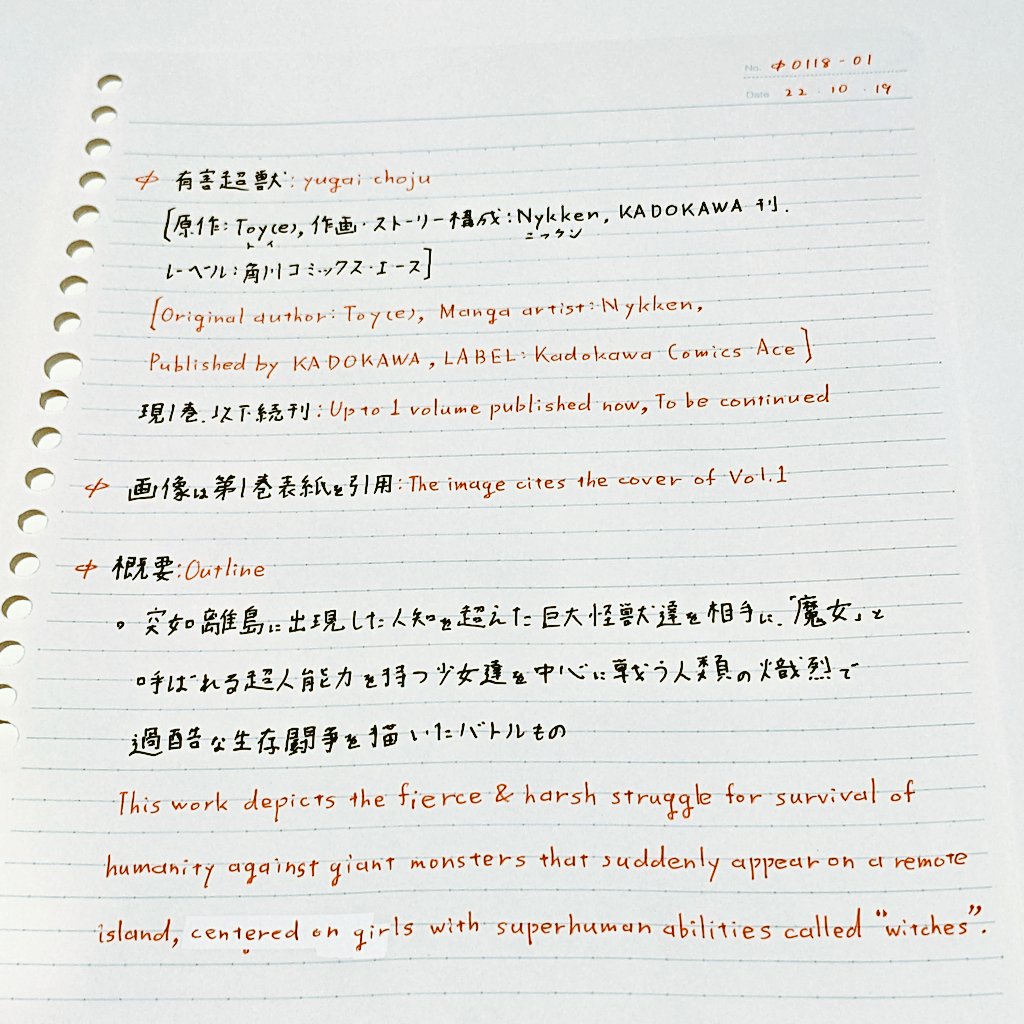 No. φ0118-01
Date 22・10・19
φ 有害超獣: yugai choju
[原作: Toy(e), 作画・ストーリー構成: Nykken, KADOKAWA 刊.
トイ ニッケン
レーベル: 角川コミックス・エース]
[Original author: Toy(e), Manga artist: Nykken,
Published by KADOKAWA, LABEL: Kadokawa Comics Ace]
現1巻.以下続刊: Up to 1 volume published now, To be continued
φ 画像は第1巻表紙を引用: The image cites the cover of Vol.1
φ 概要: Outline
。突如離島に出現した人知を超えた巨大怪獣達を相手に.「魔女」と
呼ばれる超人能力を持つ少女達を中心に戦う人類の熾烈で
過酷な生存闘争を描いたバトルもの
This work depicts the fierce & harsh struggle for survival of
humanity against giant monsters that suddenly appear on a remote
island, centered on girls with superhuman abilities called "witches".